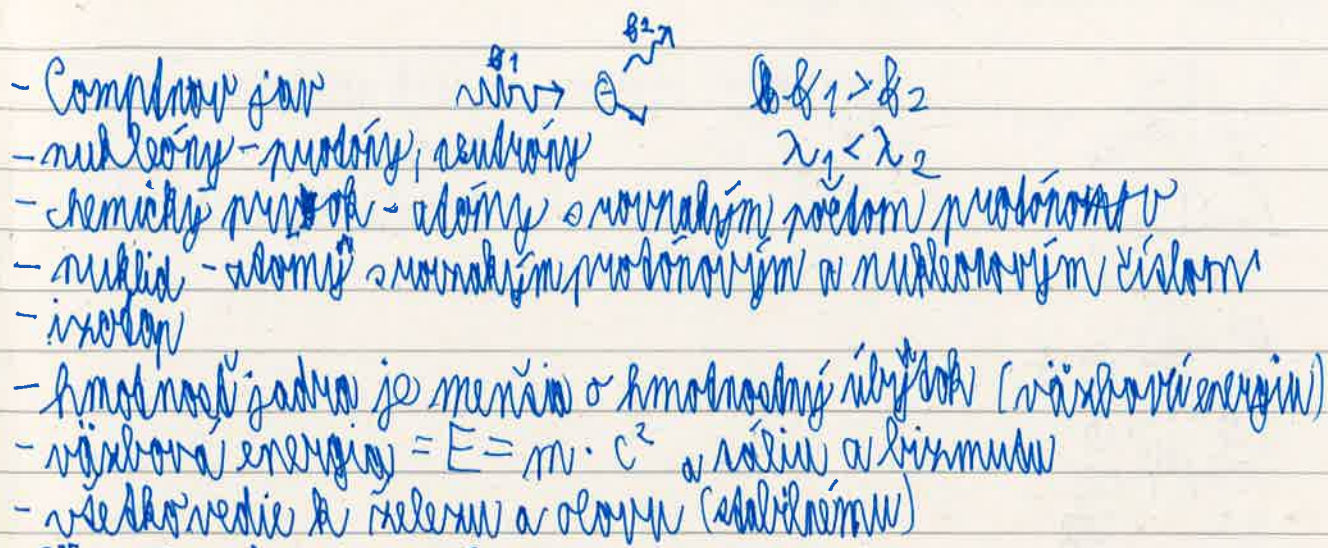 - Comptnov jav f1 f2 f1 > f2
- nukleóny - protóny, neutróny λ1 < λ2
- chemický prvok - atómy s rovnakým počtom protónov
- nuklid - atómy s rovnakým protónovým a nukleonovým číslom
- izotop
- hmotnosť jadra je menšia o hmotnostný úbytok (väzbovú energiu)
- väzbová energia = E = m · c² a táliu a bizmutu
- všetko vedie k železu a olovu (stabilnému)